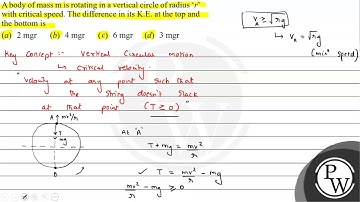 A body of mass m is rotating in a vertical circle of radius 'r'
with critical speed. The difference in its K.E. at the top and
the bottom is
(a) 2 mgr (b) 4 mgr (c) 6 mgr (d) 3 mgr
V_A ≥ √rg
↳ V_A = √rg
(min^m speed)
Key Concept :- Vertical Circular motion
↳ critical velocity.
"Velocity at any point such that
the string doesn't slack
at that point (T ≥ 0)"
A mv²/r
T
mg
B
At 'A'
T + mg = mv²/r
✓ T = mv²/r - mg
mv²/r - mg ≥ 0
P
W